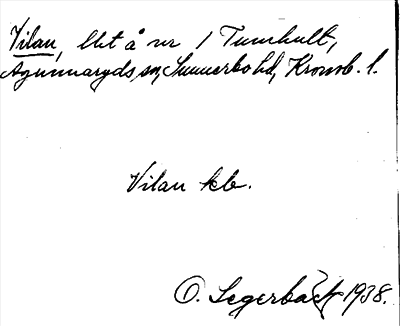 Vilan, lht å nr 1 Tunnhult,
Agunnaryds sn, Sunnerbo hd, Kronob. l.
Vilan kb.
O. Segerbäck 1938.